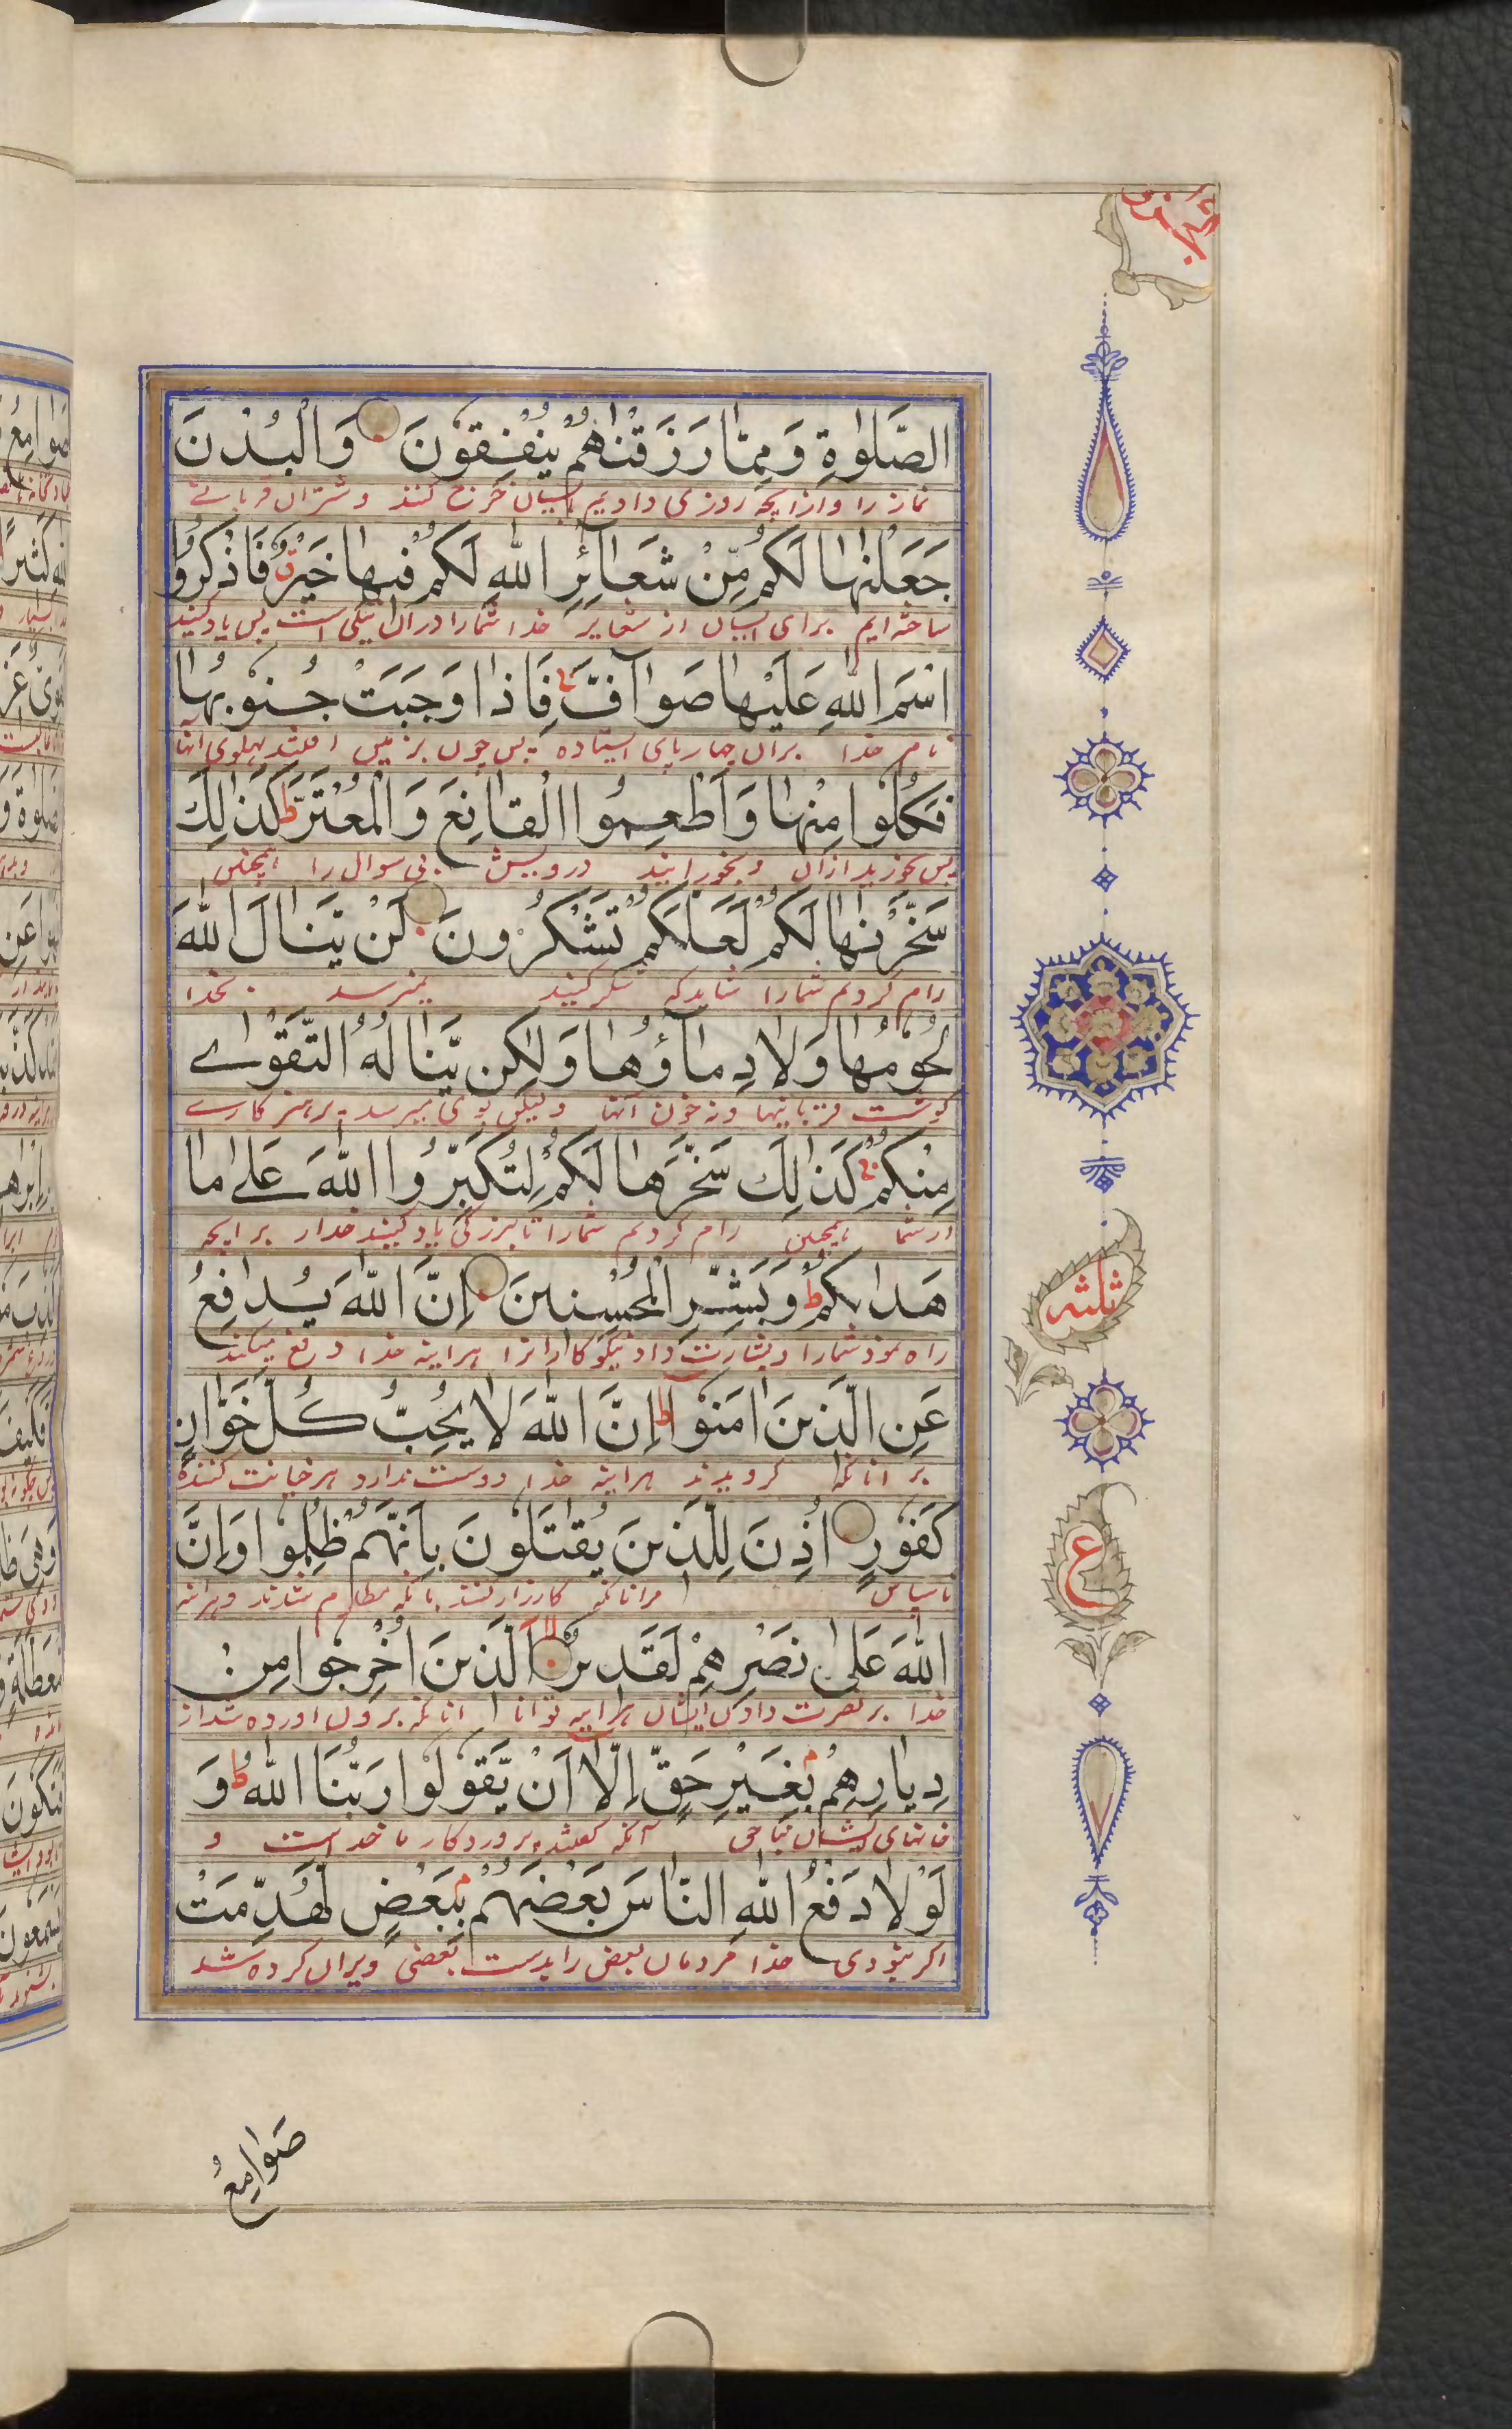 الجزو
الصَّلٰوةِ وَمِمَّا رَزَقْنٰهُمْ يُنْفِقُوْنَ وَالْبُدْنَ
نماز را وازانچه روزی دادیم ایشان خرج کنند و شتران قربانے
جَعَلْنٰهَا لَكُمْ مِّنْ شَعَآئِرِ اللّٰهِ لَكُمْ فِيْهَا خَيْرٌ ق فَاذْكُرُوا
ساخته ایم برای ایشان از شعایر خدا شمارا دران نیکی است پس یاد کنید
اسْمَ اللّٰهِ عَلَيْهَا صَوَآفَّ ج فَاِذَا وَجَبَتْ جُنُوْبُهَا
نام خدا بران چهارپای استاده پس چون بزمین افتند پهلوی انها
فَكُلُوْا مِنْهَا وَاَطْعِمُوا الْقَانِعَ وَالْمُعْتَرَّ ط كَذٰلِكَ
پس بخورید ازان و بخورانید درویش بی سوال را همچنین
سَخَّرْنٰهَا لَكُمْ لَعَلَّكُمْ تَشْكُرُوْنَ لَنْ يَّنَالَ اللّٰهَ
رام کردیم شمارا شاید که شکر کنید نمیرسد بخدا
لُحُوْمُهَا وَلَا دِمَآؤُهَا وَلٰكِنْ يَّنَالُهُ التَّقْوٰى
گوشت قربانیها ونه خون آنها ولیکن بوی میرسد پرهیز کارے
مِنْكُمْ ج كَذٰلِكَ سَخَّرَهَا لَكُمْ لِتُكَبِّرُوا اللّٰهَ عَلٰى مَا
ازشما همچنین رام کردیم شمارا تا بزرگی یاد کنید خدار برانچه
هَدٰىكُمْ ط وَبَشِّرِ الْمُحْسِنِيْنَ اِنَّ اللّٰهَ يُدَافِعُ
راه نمود شمارا وبشارت داد نیکو کارانرا هراینه خدا دفع میکند
عَنِ الَّذِيْنَ اٰمَنُوْا ط اِنَّ اللّٰهَ لَا يُحِبُّ كُلَّ خَوَّانٍ
بر انانکه گرویدند هراینه خدا دوست ندارد هر خیانت کننده
كَفُوْرٍ اُذِنَ لِلَّذِيْنَ يُقٰتَلُوْنَ بِاَنَّهُمْ ظُلِمُوْا وَاِنَّ
ناسپاس مرانانکه کارزار کنند بانکه مظلوم شدند وهراینه
اللّٰهَ عَلٰى نَصْرِهِمْ لَقَدِيْرٌ الَّذِيْنَ اُخْرِجُوْا مِنْ
خدا بر نصرت دادن ایشان هراینه توانا انانکه برون اورده شد از
دِيَارِهِمْ بِغَيْرِ حَقٍّ اِلَّا اَنْ يَّقُوْلُوْا رَبُّنَا اللّٰهُ ط وَ
خانهای ایشان بناحق آنکه گفتند پروردکار ما خداست و
لَوْلَا دَفْعُ اللّٰهِ النَّاسَ بَعْضَهُمْ بِبَعْضٍ لَّهُدِّمَتْ
اکر نبودی خدا مردمان بعض را بدست بعضی ویران کرده شد
ثلثه
ع
صَوَامِعُ